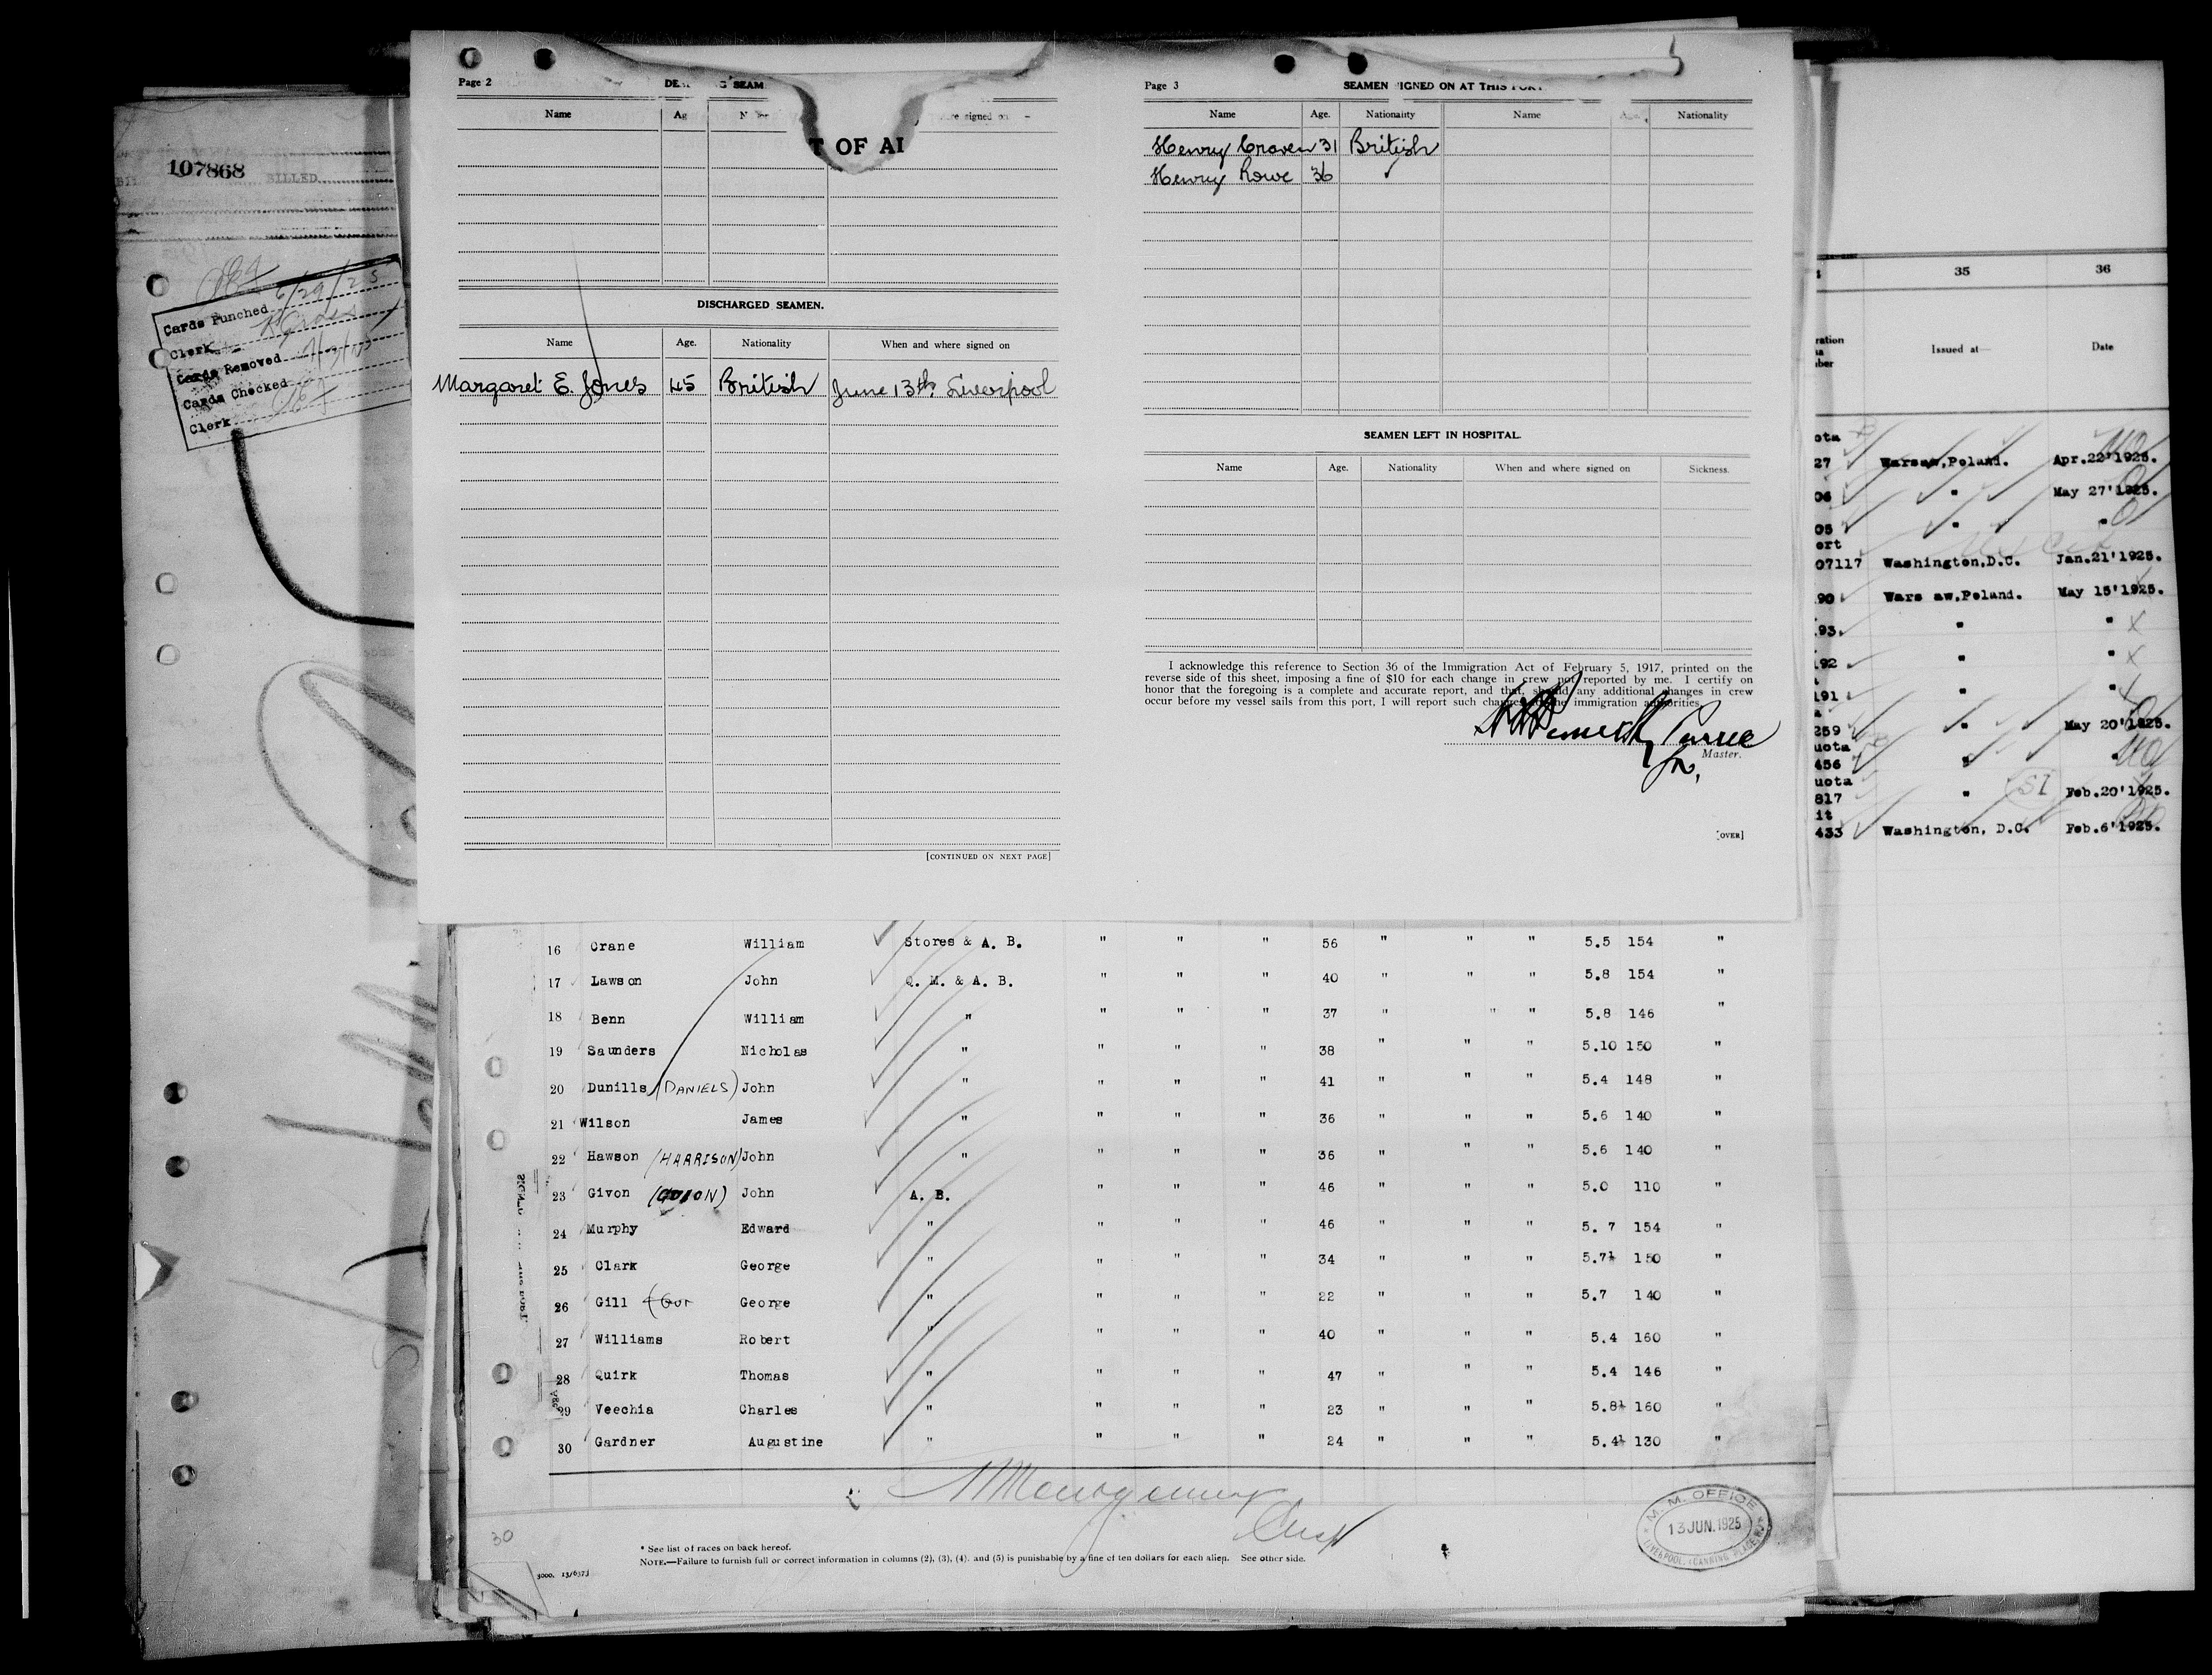 107868
BILLED
6/29/25
Cards Punched
Clerk
Cards Removed
Cards Checked
Clerk
Page 2
SEAM
Name
signed on
T OF AL
DISCHARGED SEAMEN.
Name Age. Nationality When and where signed on
Margaret E. Jones 45 British June 13th Liverpool
[CONTINUED ON NEXT PAGE]
Page 3 SEAMEN SIGNED ON AT THIS PORT
Name Age. Nationality Name Age. Nationality
Henry Craven 31 British
Henry Rowe 36 "
SEAMEN LEFT IN HOSPITAL.
Name Age. Nationality When and where signed on Sickness.
I acknowledge this reference to Section 36 of the Immigration Act of February 5, 1917, printed on the
reverse side of this sheet, imposing a fine of $10 for each change in crew not reported by me. I certify on
honor that the foregoing is a complete and accurate report, and that, should any additional changes in crew
occur before my vessel sails from this port, I will report such changes to the immigration authorities.
Master.
[OVER]
35 36
Issued at— Date
27 Warsaw,Poland. Apr.22'1925.
06 " May 27'1925.
05 " "
07117 Washington,D.C. Jan.21'1925.
90 Wars aw,Poland. May 15'1925.
93 " "
192 " "
191 " "
259 " May 20'1925.
uota
456 " "
uota
817 " SI Feb.20'1925.
it
433 Washington, D.C. Feb.6'1925.
16 Crane William Stores & A. B. " " " 56 " " " 5.5 154 "
17 Lawson John Q. M. & A. B. " " " 40 " " " 5.8 154 "
18 Benn William " " " " 37 " " " 5.8 146 "
19 Saunders Nicholas " " " " 38 " " " 5.10 150 "
20 Dunills (DANIELS) John " " " " 41 " " " 5.4 148 "
21 Wilson James " " " " 36 " " " 5.6 140 "
22 Hawson (HARRISON) John " " " " 36 " " " 5.6 140 "
23 Givon John A. B. " " " 46 " " " 5.0 110 "
24 Murphy Edward " " " " 46 " " " 5. 7 154 "
25 Clark George " " " " 34 " " " 5.7½ 150 "
26 Gill George " " " " 22 " " " 5.7 140 "
27 Williams Robert " " " " 40 " " " 5.4 160 "
28 Quirk Thomas " " " " 47 " " " 5.4 146 "
29 Veechia Charles " " " " 23 " " " 5.8½ 160 "
30 Gardner Augustine " " " " 24 " " " 5.4½ 130 "
30
* See list of races on back hereof.
NOTE.—Failure to furnish full or correct information in columns (2), (3), (4). and (5) is punishable by a fine of ten dollars for each alien. See other side.
M. M. OFFICE
13 JUN. 1925
LIVERPOOL. (CANNING PLACE)